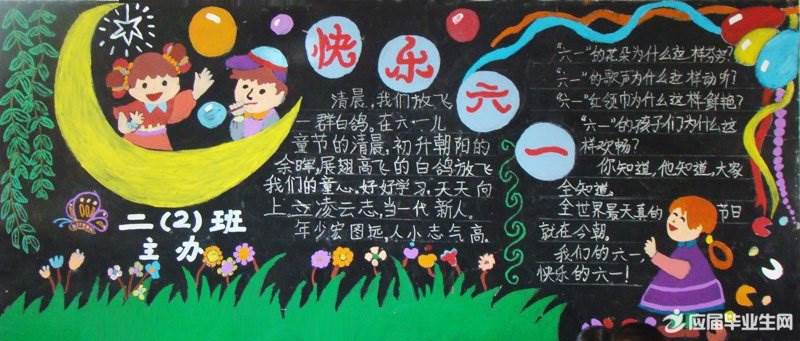 快乐六一
清晨,我们放飞
一群白鸽,在六一儿
童节的清晨,初升朝阳的
余晖,展翅高飞的白鸽放飞
我们的童心,好好学习,天天向
上,立凌云志,当一代新人。
年少宏图远,人小志气高。
“六一”的花朵为什么这样芬芳?
“六一”的歌声为什么这样动听?
“六一”红领巾为什么这样鲜艳?
“六一”的孩子们为什么这
样欢畅?
你知道,他知道,大家
全知道。
全世界最天真的节日
就在今朝。
我们的六一,
快乐的六一!
二(2)班
主办
应届毕业生网